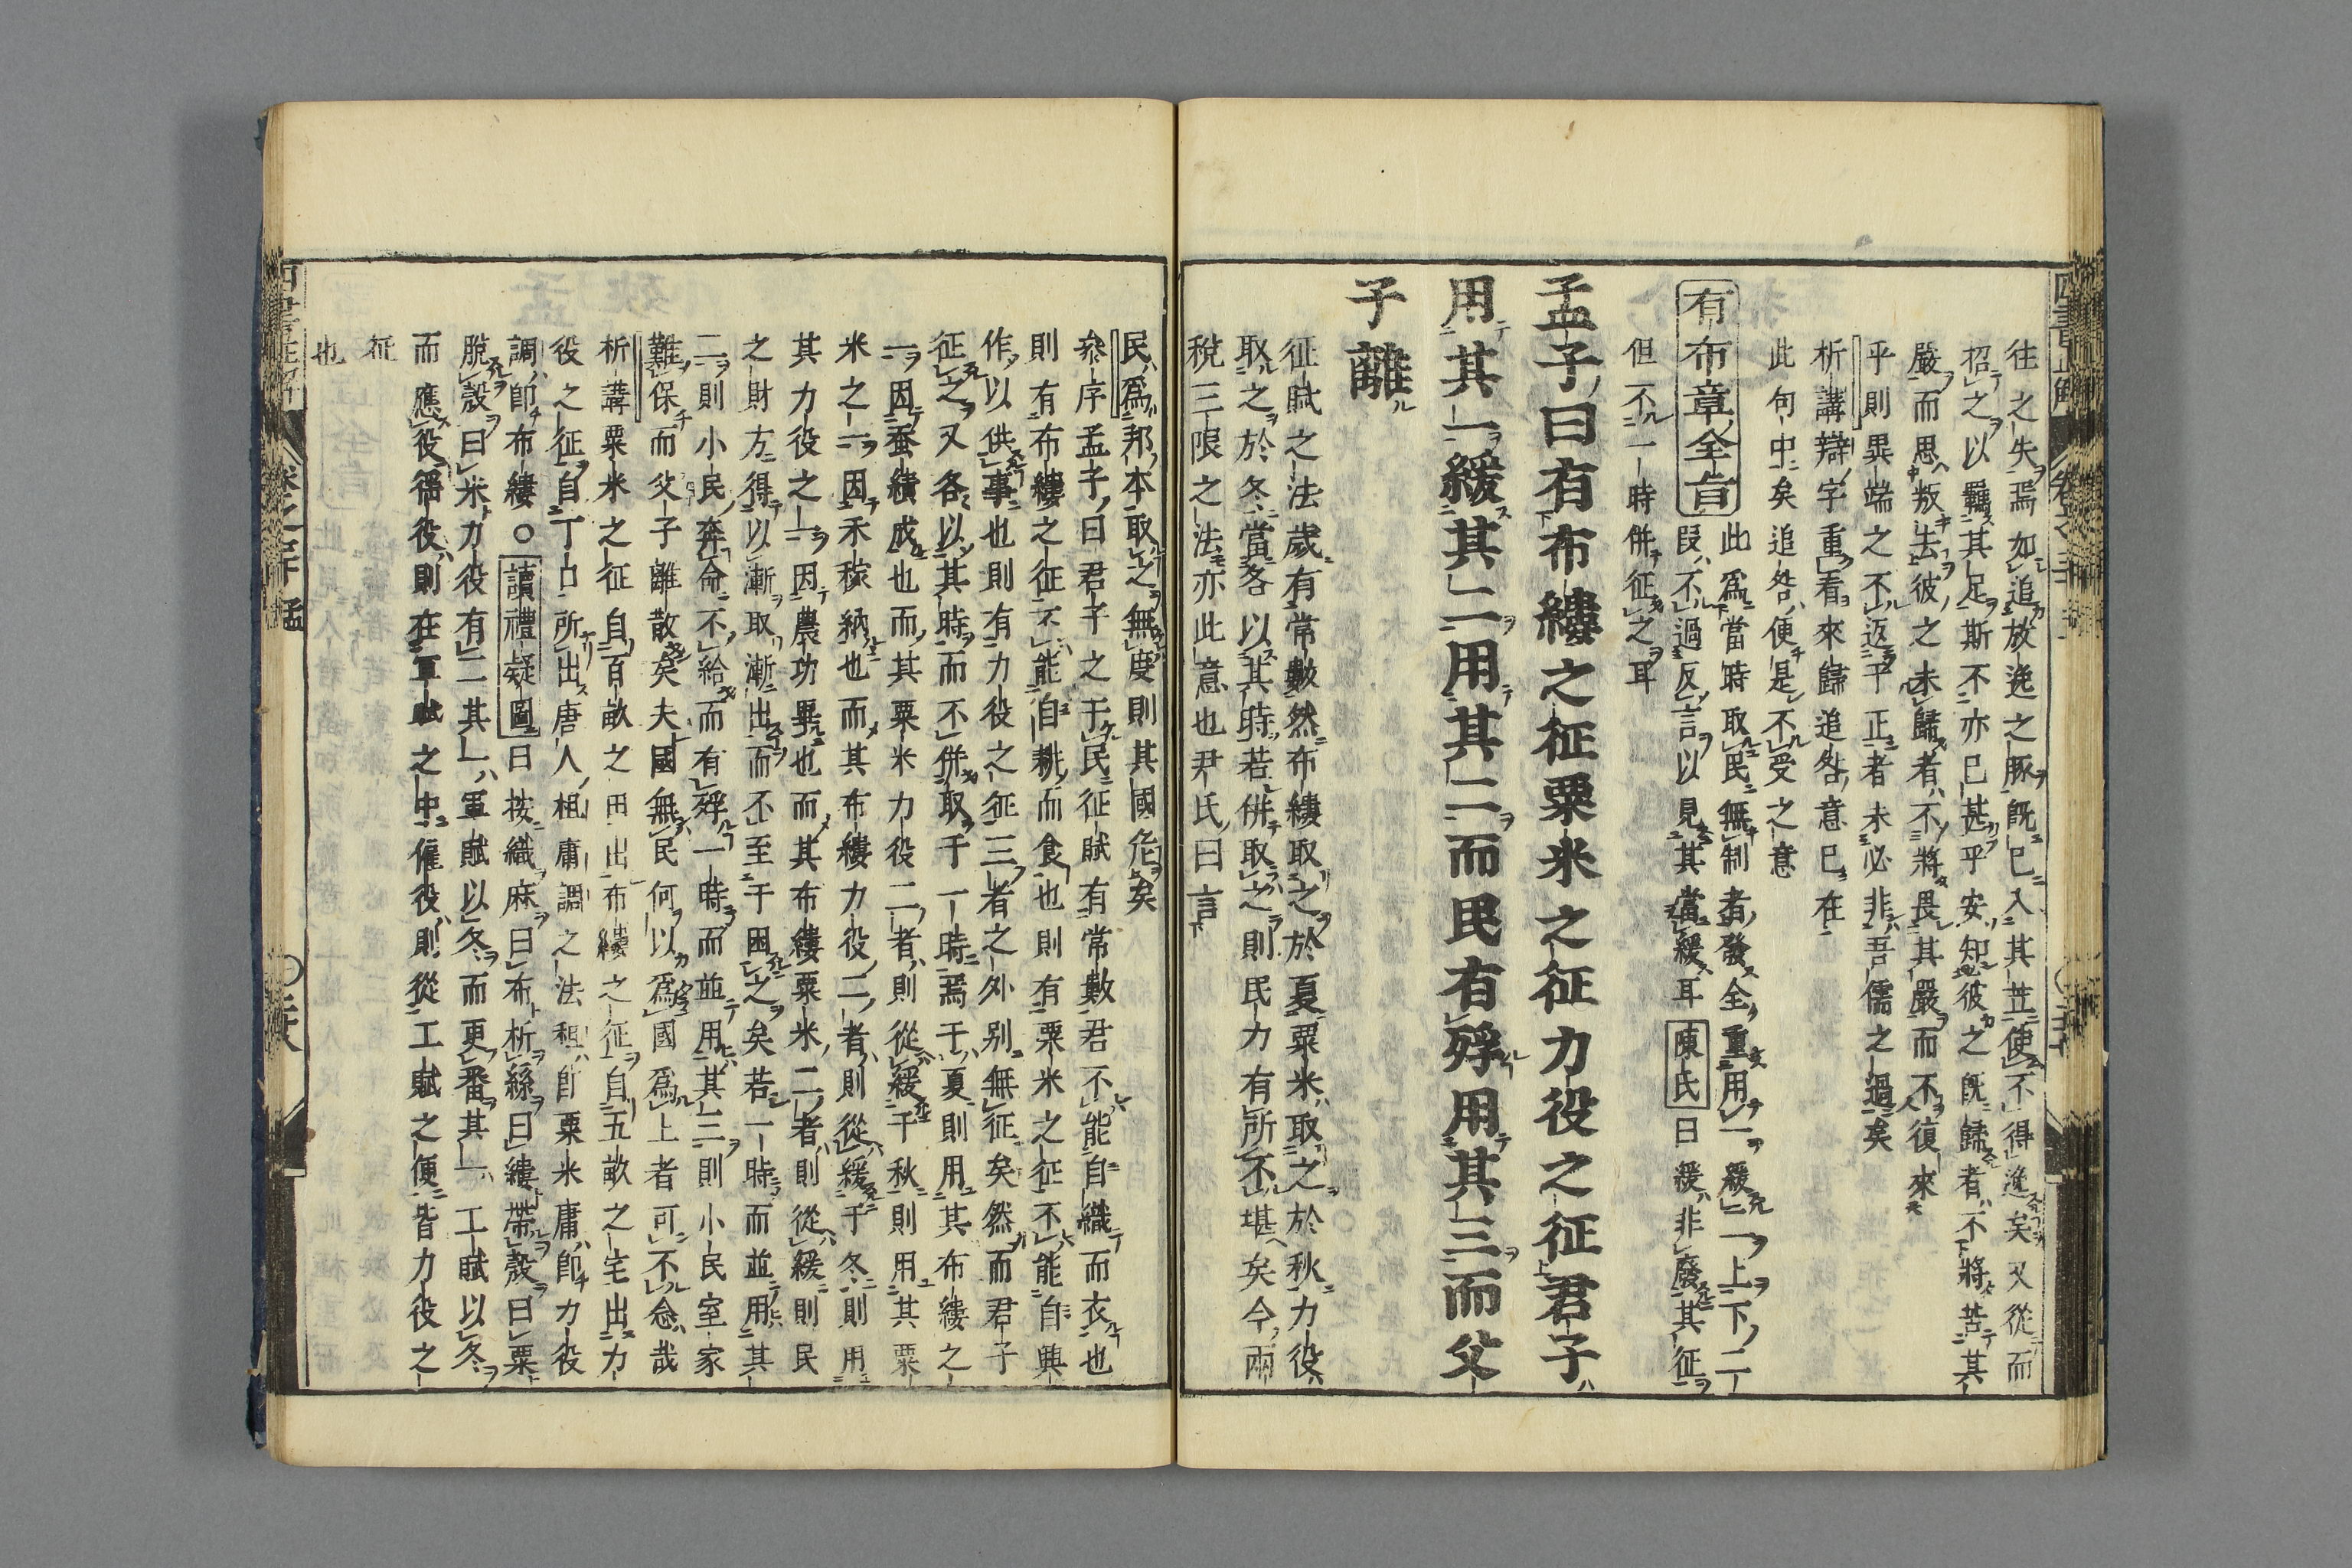 往之失焉如追放逸之豚既已入其苙使不得逸矣又從而
招之以羈其足斯不亦已甚乎安知彼之既歸者不將苦其
嚴而思叛去彼之未歸者不將畏其嚴而不復來
乎則異端之不返于正者未必非吾儒之過矣
析講辯字重看來歸追咎意已在
此句中矣追咎便是不受之意
有布章全旨
此爲當時取民無制者發全重用一緩二上下二
段不過反言以見其當緩耳陳氏曰緩非廢其征
但不一時併征之耳
孟子曰有布縷之征粟米之征力役之征君子
用其一緩其二用其二而民有殍用其三而父
子離
征賦之法歲有常數然布縷取之於夏粟米取之於秋力役
取之於冬當各以其時若併取之則民力有所不堪矣今兩
稅三限之法亦此意也尹氏曰言
民爲邦本取之無度則其國危矣
叅序孟子曰君子之于民征賦有常數君不能自織而衣也
則有布縷之征不能自耕而食也則有粟米之征不能自興
作以供事也則有力役之征三者之外别無征矣然而君子
征之又各以其時而不併取于一時焉于夏則用其布縷之
一因蚕績成也而其粟米力役二者則從緩于秋則用其粟
米之一因禾稼納也而其布縷力役二者則從緩于冬則用
其力役之一因農功畢也而其布縷粟米二者則從緩則民
之財方得以漸取漸出而不至于困之矣若一時而並用其
二則小民奔命不給而有殍一時而並用其三則小民室家
難保而父子離散矣夫國無民何以爲國爲上者可不念哉
析講粟米之征自百畝之田出布縷之征自五畝之宅出力
役之征自丁口所出唐人租庸調之法租卽粟米庸卽力役
調卽布縷○讀禮疑圖曰按織麻曰布析絲曰縷帶殼曰粟
脫殼曰米力役有二其一軍賦以冬而更番其一工賦以冬
而應役徭役則在軍賦之中僱役則從工賦之便皆力役之
征
也
四書正解
卷之
孟